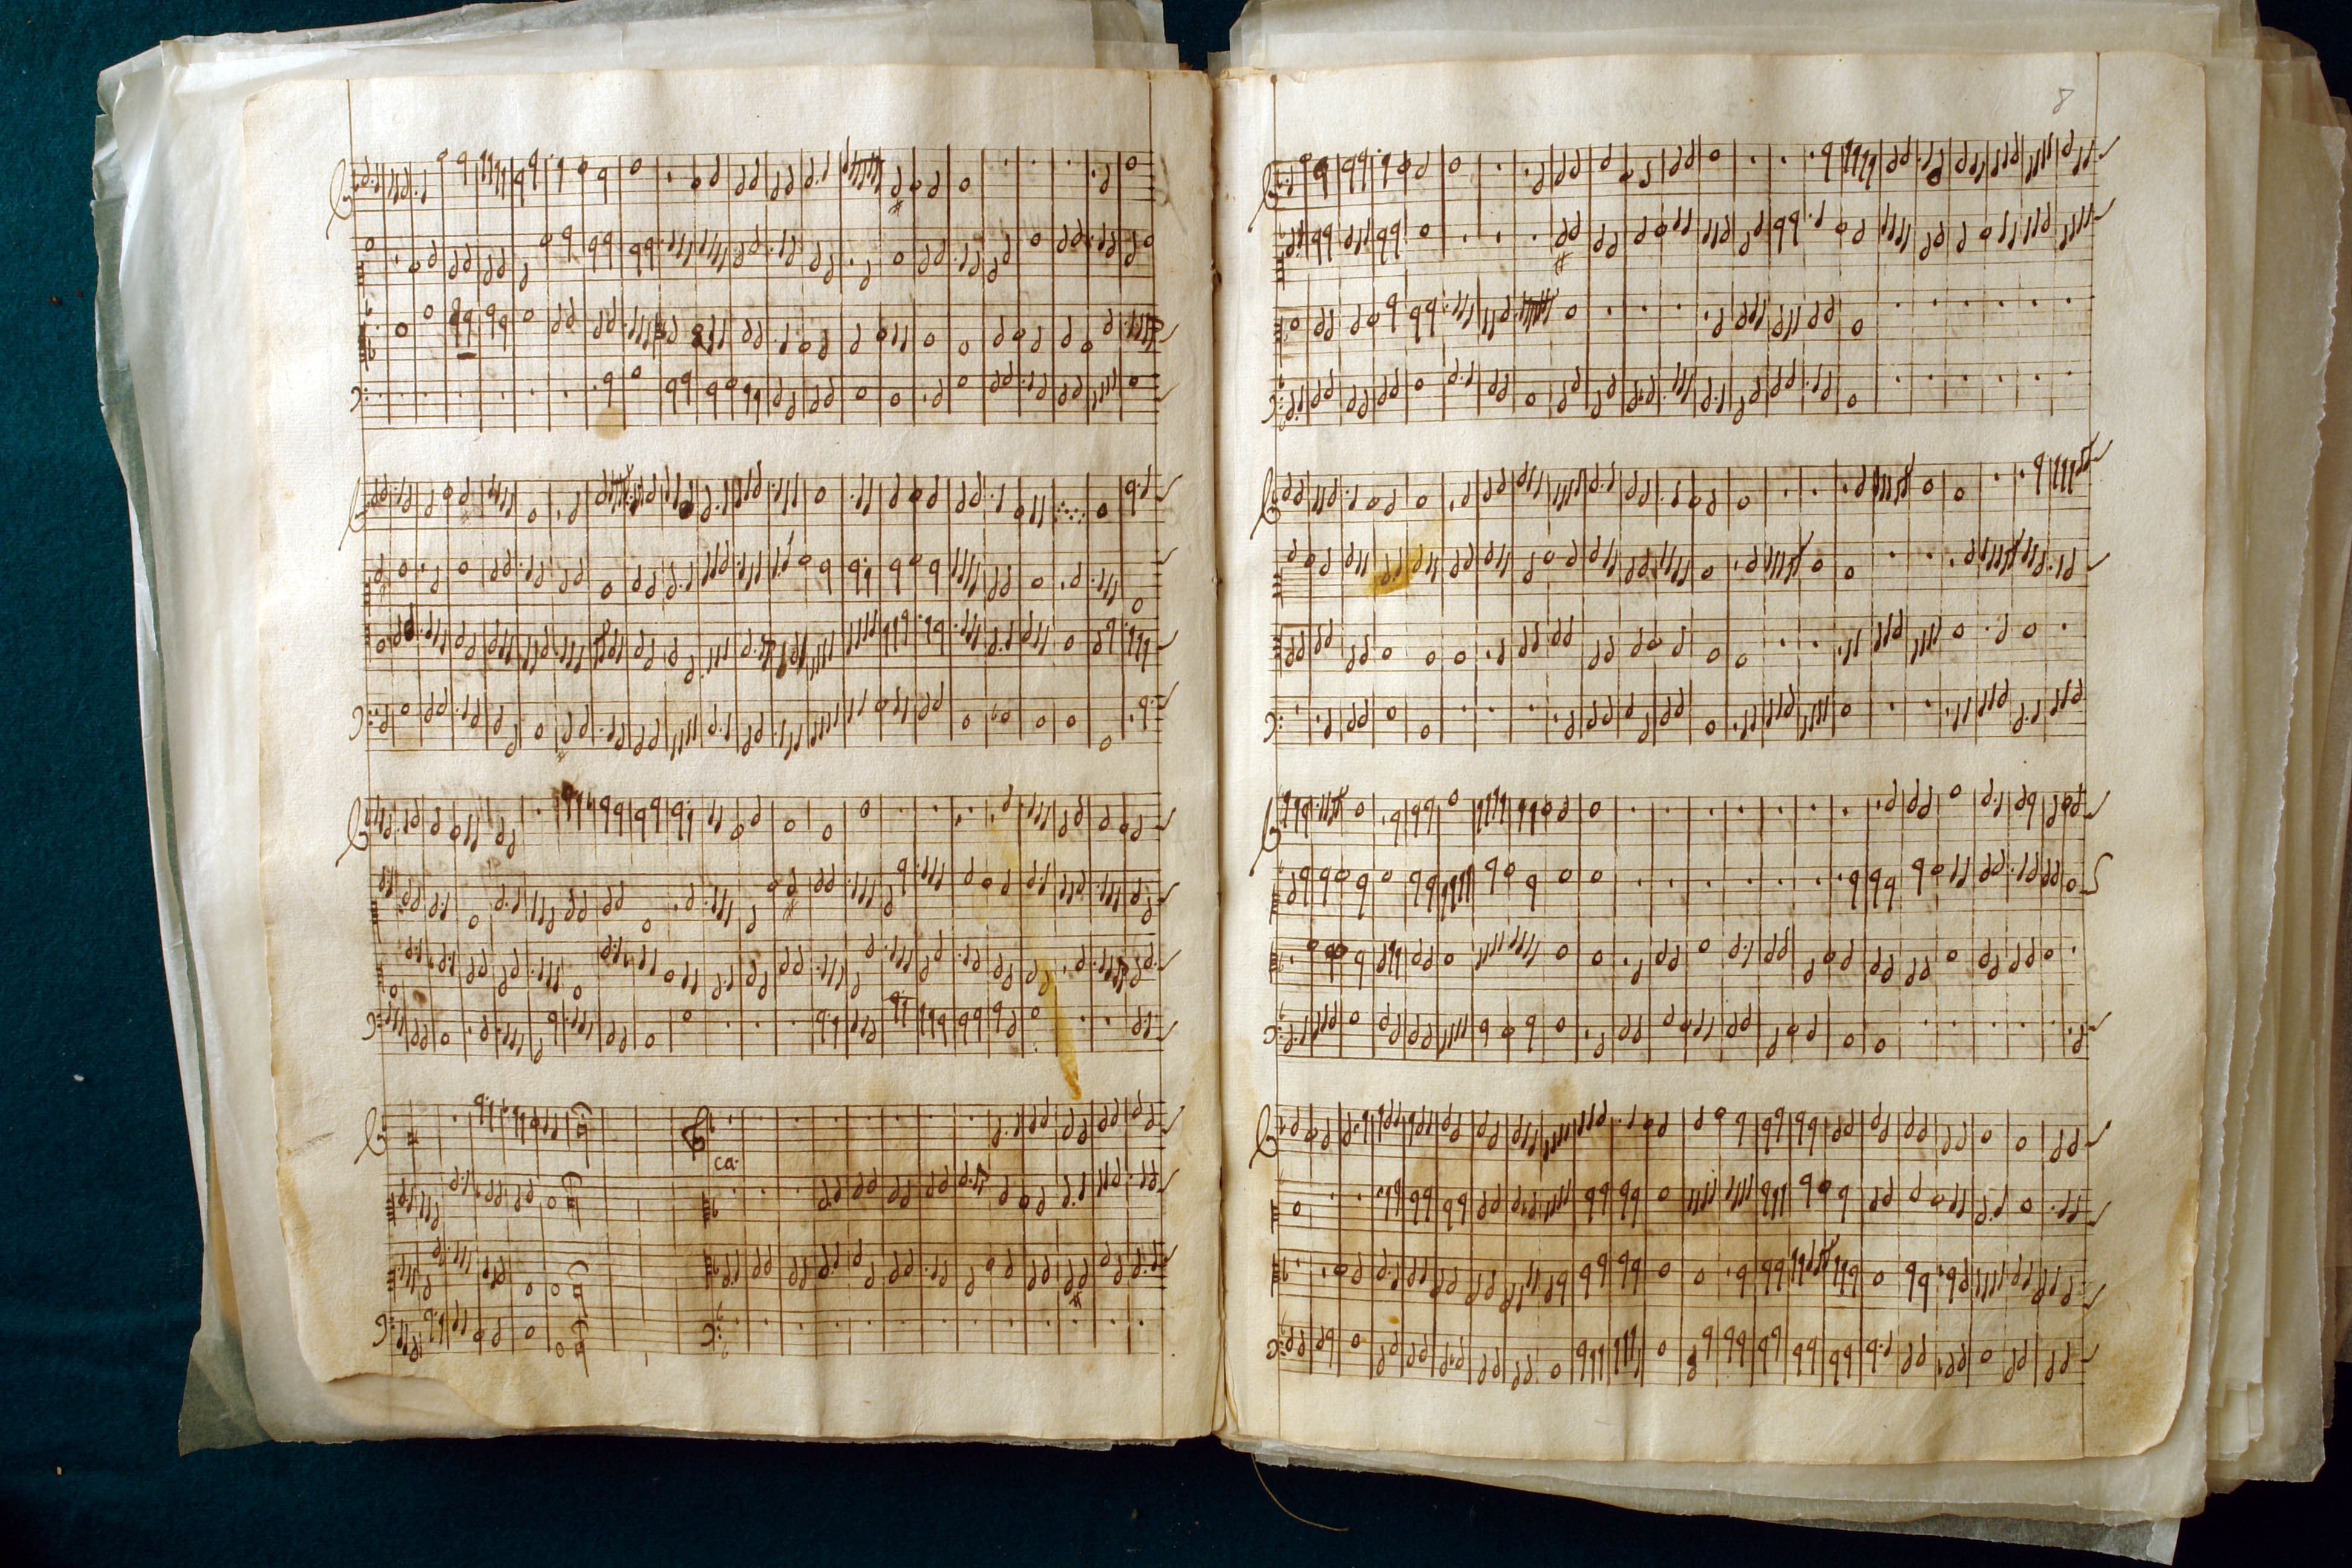 8
ca.